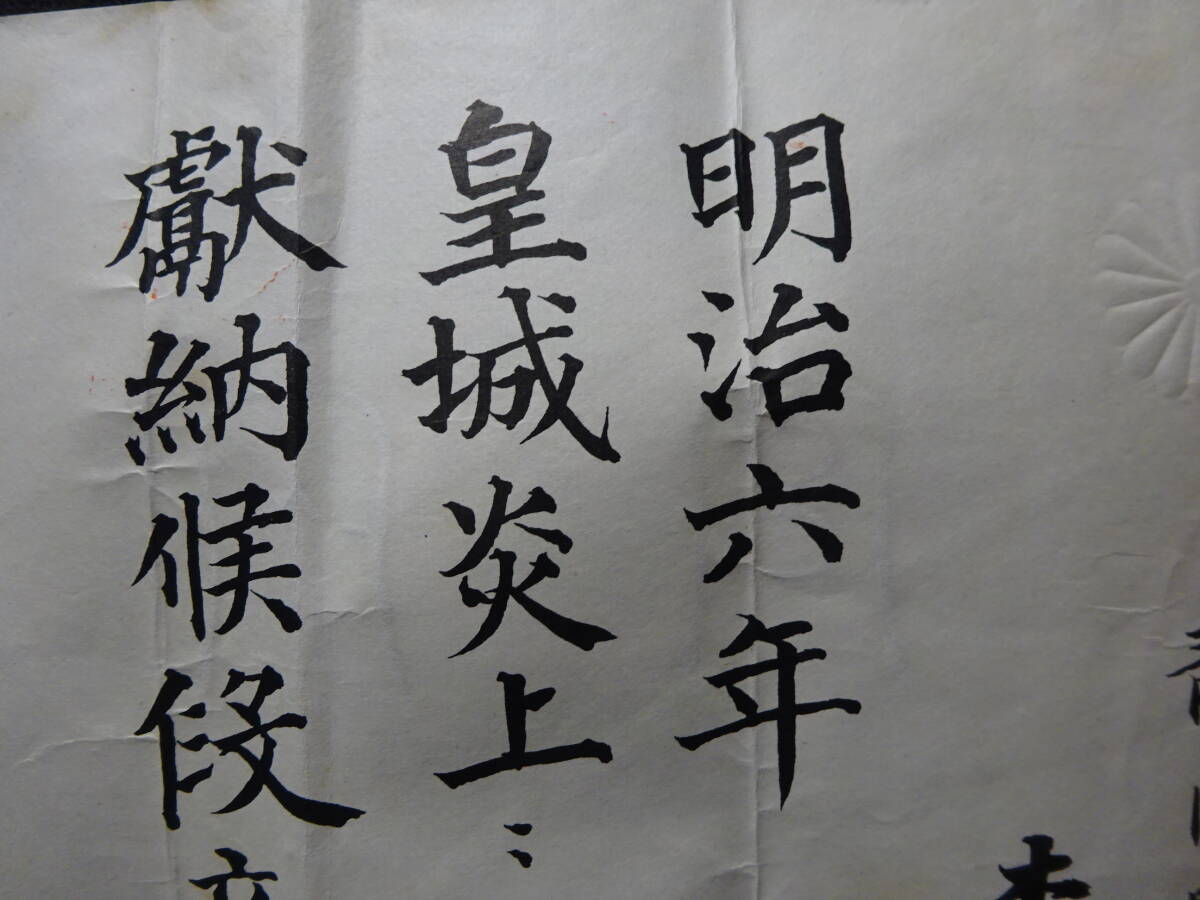 明治六年
皇城炎上ニ
獻納候段